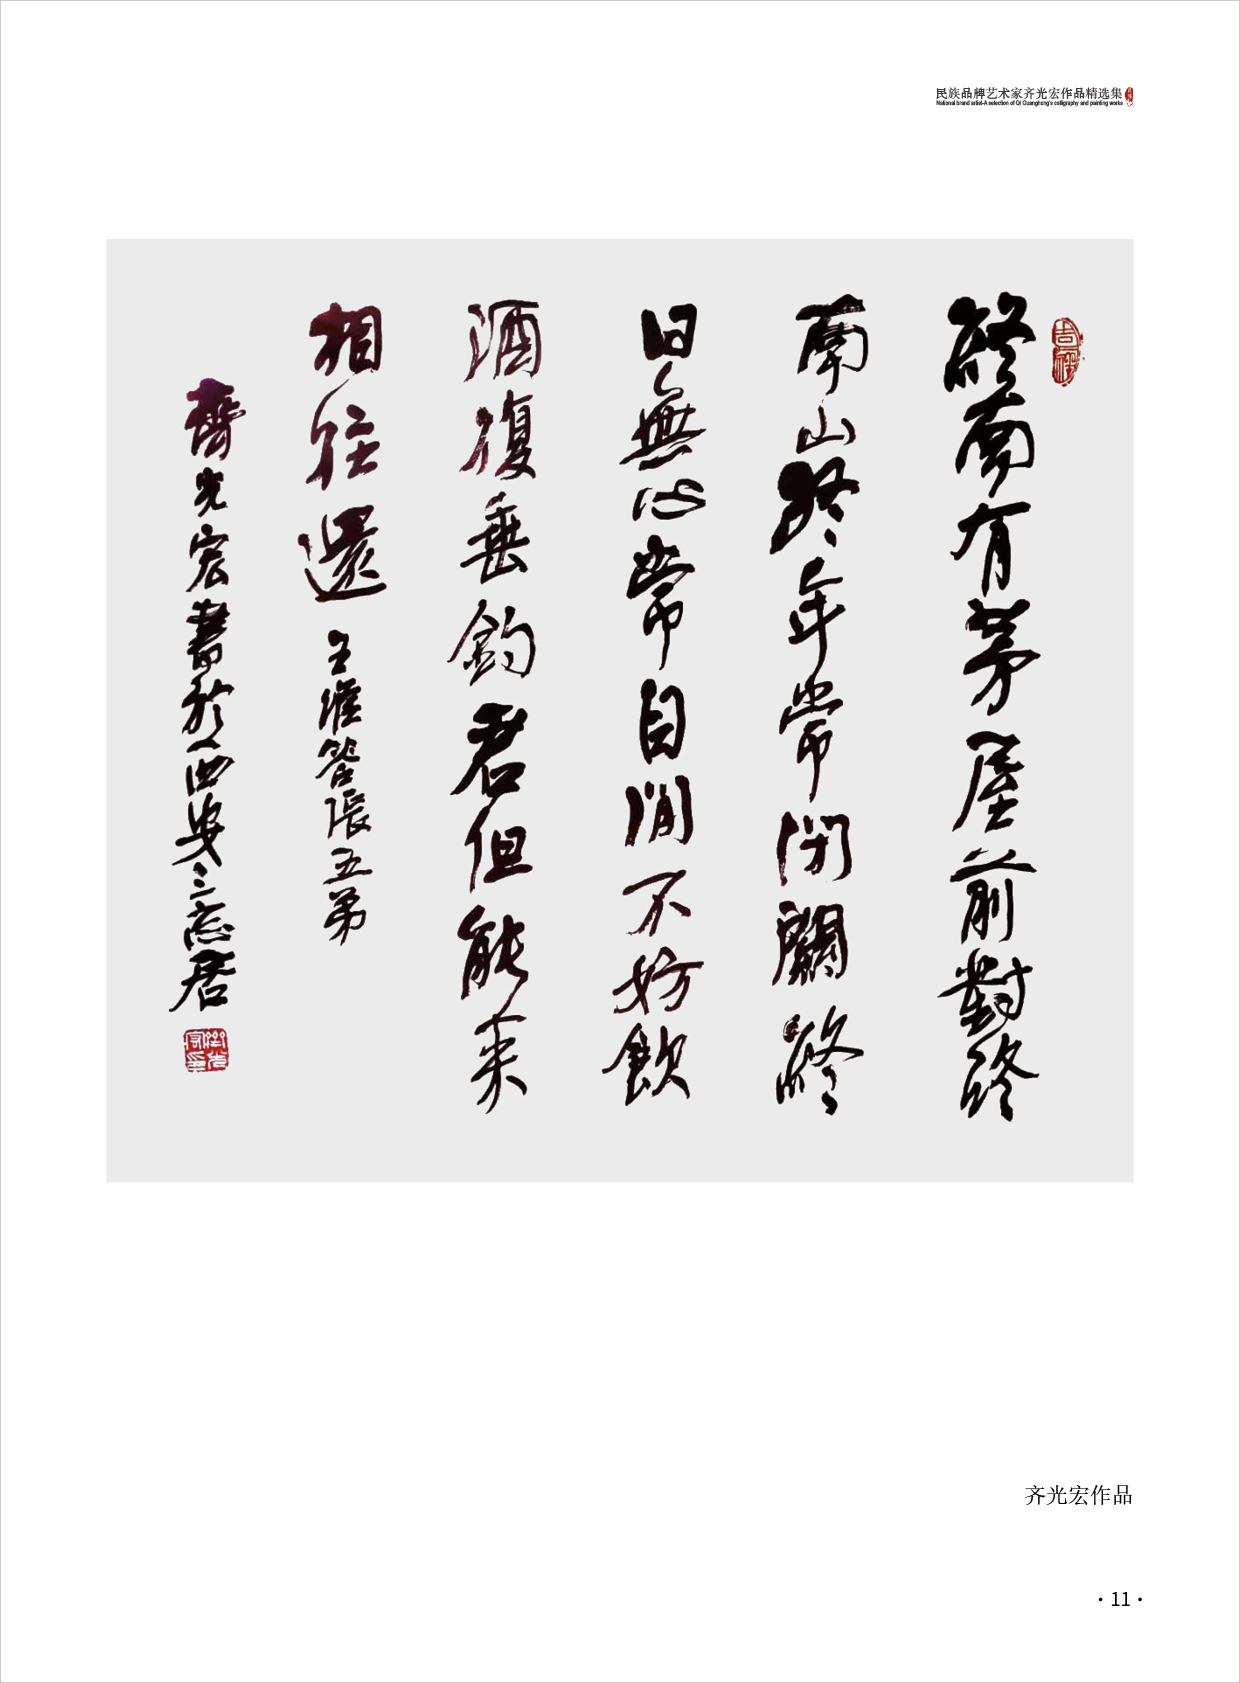 民族品牌艺术家齐光宏作品精选集
National brand artist-A selection of Qi Guanghong's calligraphy and painting works
吉祥
終南有茅屋前對終
南山終年常閉關終
日無心常自閒不妨飲
酒復垂釣君但能来
相往還 王維答張五弟
齊光宏書於西安三忘居
齐光宏作品
·11·